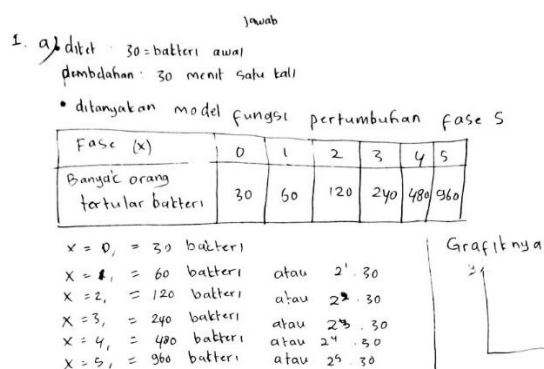 Jawab
1. a) diket : 30 = bakteri awal
pembelahan : 30 menit satu kali
• ditanyakan model fungsi pertumbuhan fase 5
Fase (x) 0 1 2 3 4 5
Banyak orang tertular bakteri 30 60 120 240 480 960
x = 0, = 30 bakteri
x = 1, = 60 bakteri atau 2¹ . 30
x = 2, = 120 bakteri atau 2² . 30
x = 3, = 240 bakteri atau 2³ . 30
x = 4, = 480 bakteri atau 2⁴ . 30
x = 5, = 960 bakteri atau 2⁵ . 30
Grafiknya
y